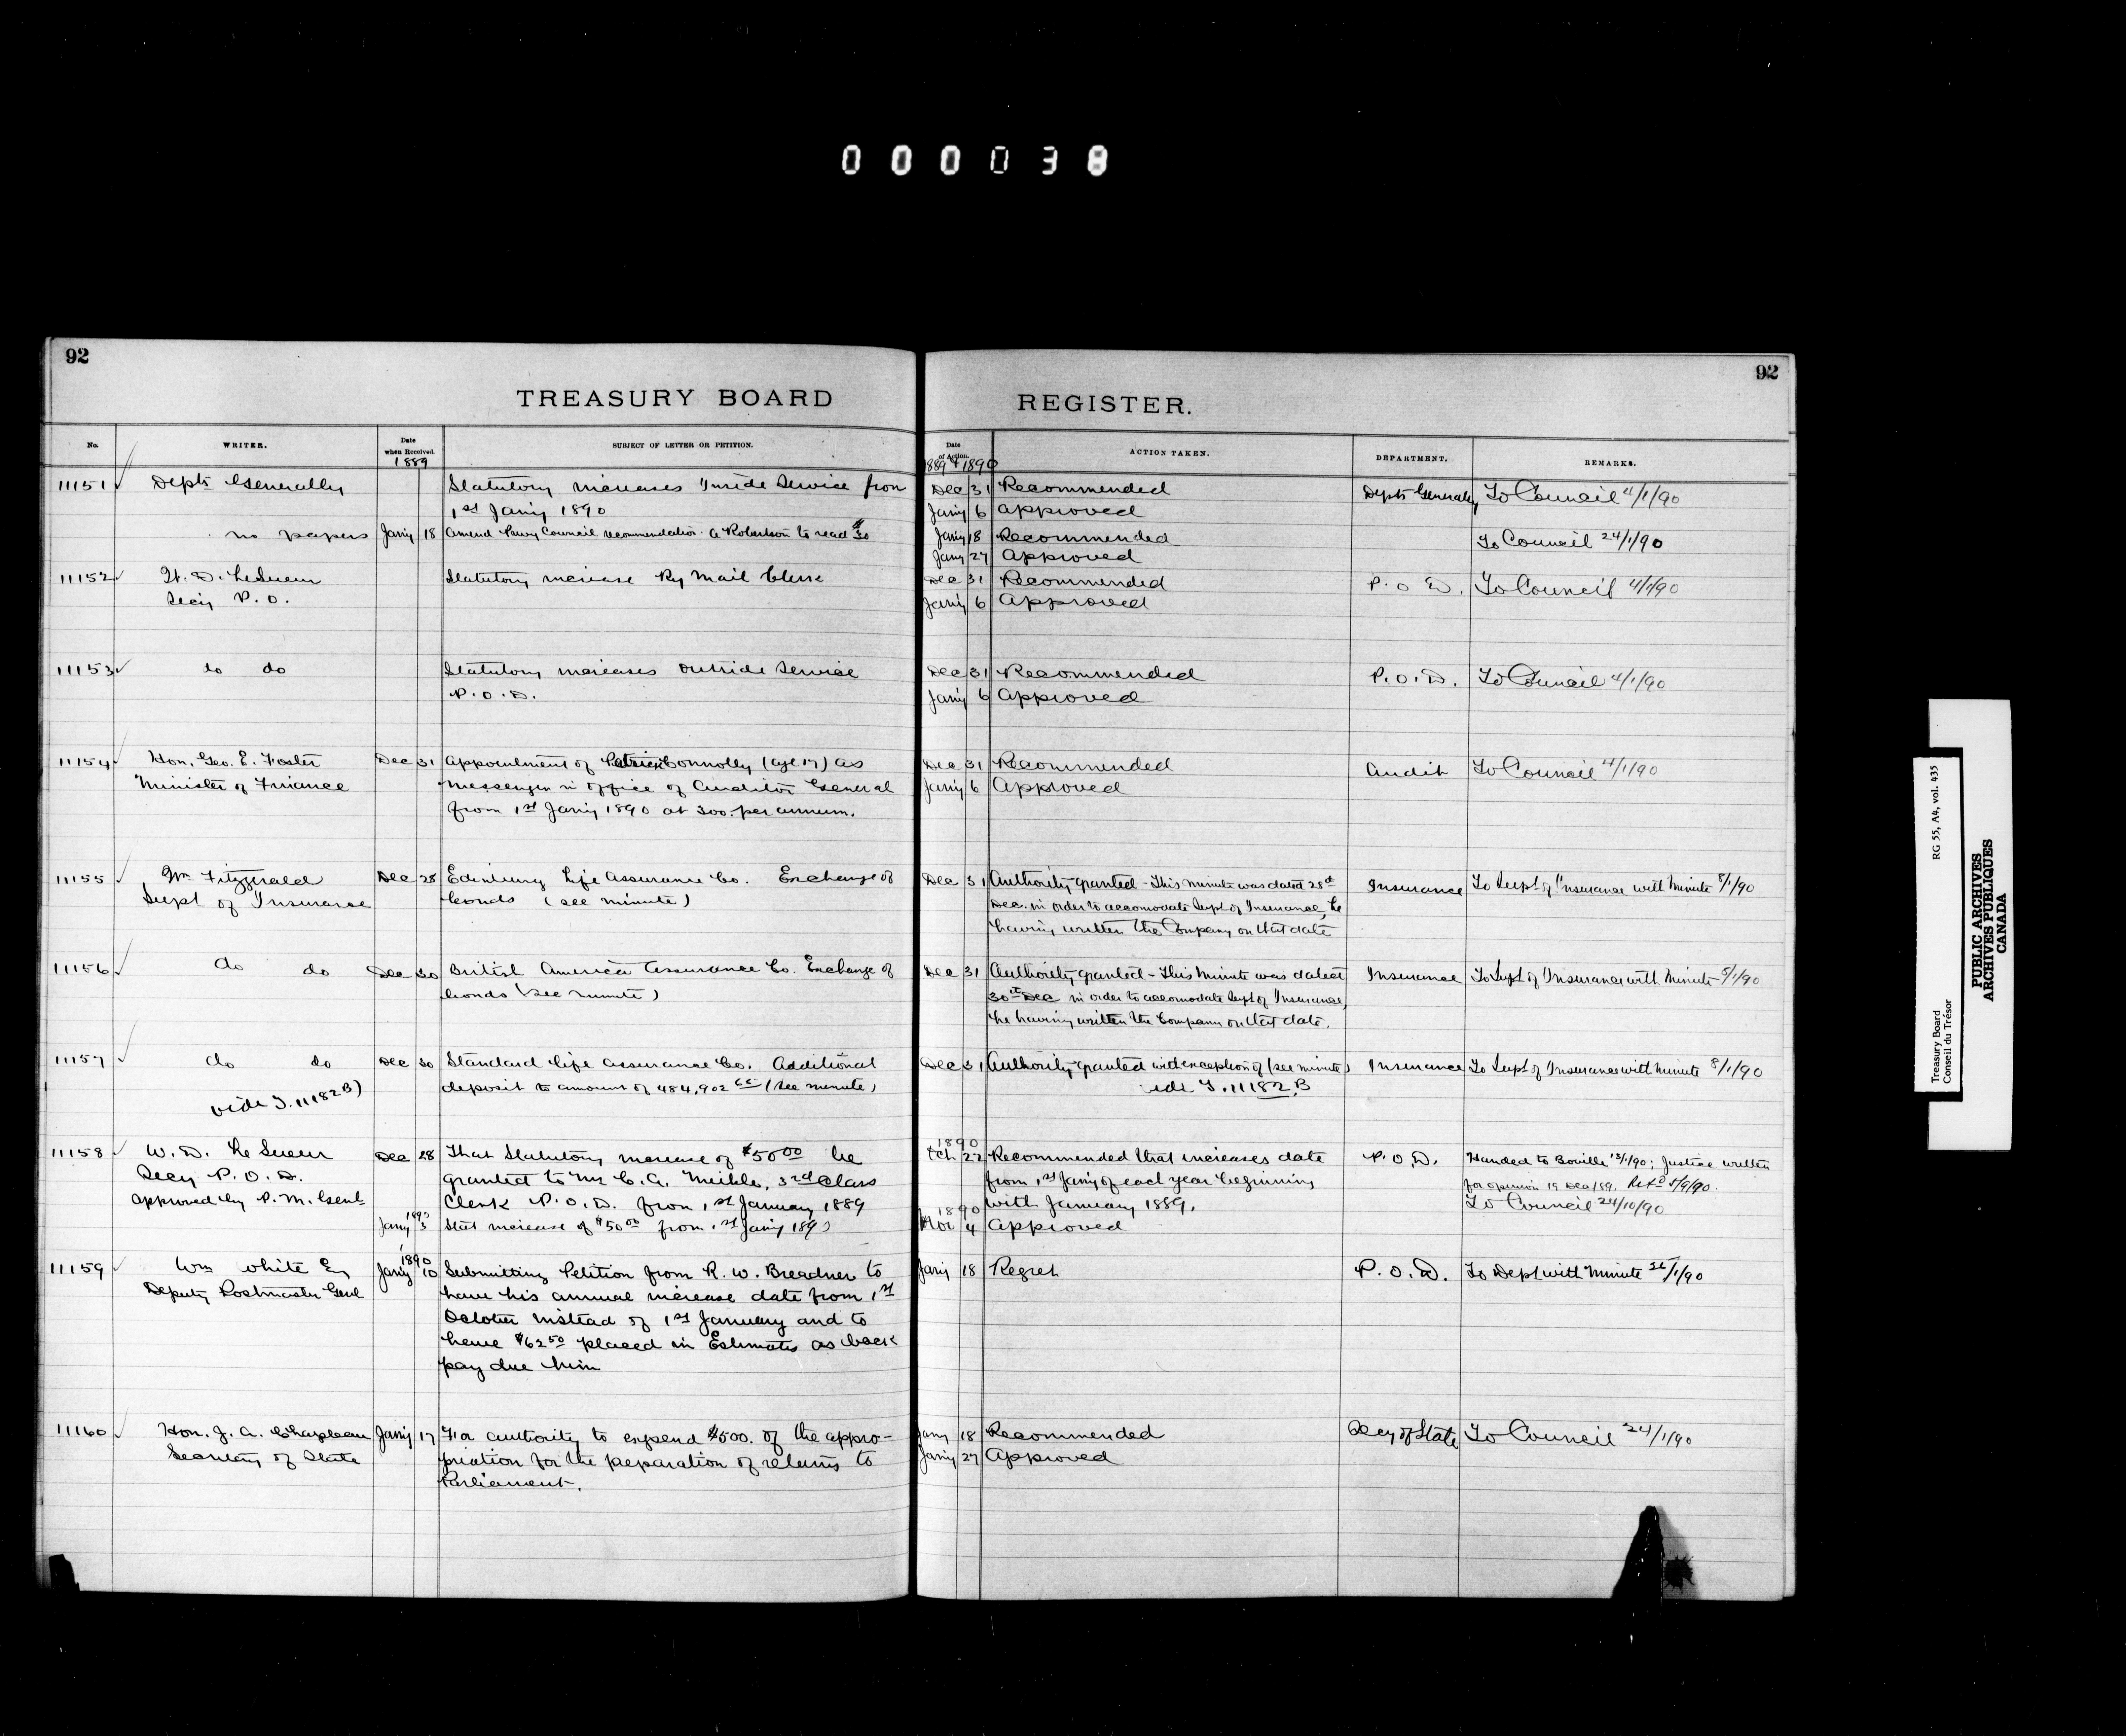 000038
92
92
TREASURY BOARD
REGISTER.
No.
WRITER.
Date when Received.
1889
SUBJECT OF LETTER OR PETITION.
Date of Action.
1889 & 1890
ACTION TAKEN.
DEPARTMENT.
REMARKS.
11151 Depts Generally Statutory increases Inside Service from Dec 31 Recommended Depts Generally To Council 4/1/90
1st Jany 1890 Jany 6 Approved
no papers Jany 18 Amend Privy Council recommendation A Robertson to read $30 Jany 18 Recommended To Council 24/1/90
Jany 27 Approved
11152 W. D. LeSueur Statutory increase Ry Mail Clerk Dec 31 Recommended P. O. D. To Council 4/1/90
Secy P. O. Jany 6 Approved
11153 do do Statutory increases Outside Service Dec 31 Recommended P. O. D. To Council 4/1/90
P. O. D. Jany 6 Approved
11154 Hon. Geo. E. Foster Dec 31 Appointment of Patrick Connolly (age 17) as Dec 31 Recommended Audit To Council 4/1/90
Minister of Finance Messenger in office of Auditor General Jany 6 Approved
from 1st Jany 1890 at 300. per annum.
11155 Wm Fitzgerald Dec 28 Edinburg Life Assurance Co. Exchange of Dec 31 Authority granted - This minute was dated 28th Insurance To Supt of Insurance with Minute 8/1/90
Supt of Insurance bonds (see minute) Dec. in order to accomodate Supt of Insurance, he
having written the Company on that date
11156 do do Dec 30 British America Assurance Co. Exchange of Dec 31 Authority granted - This Minute was dated Insurance To Supt of Insurance with Minute 8/1/90
bonds (see minute) 30th Dec in order to accomodate Supt of Insurance,
he having written the Company on that date.
11157 do do Dec 30 Standard Life Assurance Co. Additional Dec 31 Authority granted with exception of (see minute) Insurance To Supt of Insurance with Minute 8/1/90
vide T. 11182 B) deposit to amount of 484,902 66 (see minute) vide T. 11182 B
11158 W. D. Le Sueur Dec 28 That Statutory increase of $50 00 be 1890 22 Recommended that increases date P. O. D. Handed to Boville 13/1/90; Justice written
Secy P. O. D. granted to Mr C. A. Meikle, 3rd Class from 1st Jany of each year beginning for opinion 19 Dec/89. Retd 5/9/90.
Approved by P. M. Genl Clerk P. O. D. from 1st January 1889 with January 1889. To Council 24/10/90
Jany 3 Stat increase of $50 00 from 1st Jany 1890 Nov 4 Approved
11159 Wm White Esq 1890 Jany 10 Submitting Petition from R. W. Breadner to Jany 18 Regret P. O. D. To Dept with Minute 22/1/90
Deputy Postmaster Genl have his annual increase date from 1st
October instead of 1st January and to
have $62 50 placed in Estimates as back
pay due him
11160 Hon. J. A. Chapleau Jany 17 For authority to expend $500. of the appro- Jany 18 Recommended Secy of State To Council 24/1/90
Secretary of State priation for the preparation of returns to Jany 27 Approved
Parliament.
Treasury Board RG 55, A4, vol. 435
Conseil du Trésor
PUBLIC ARCHIVES
ARCHIVES PUBLIQUES
CANADA